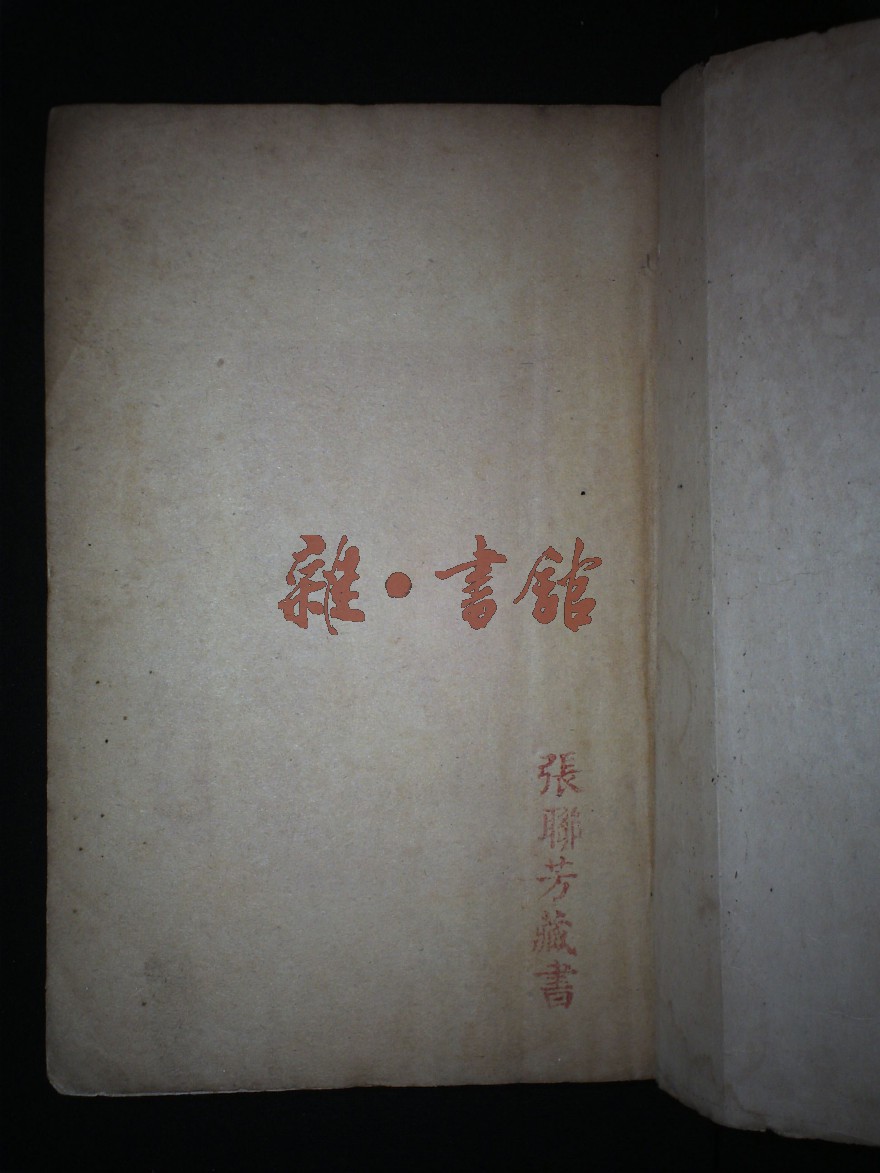 雜·書館
張聯芳藏書